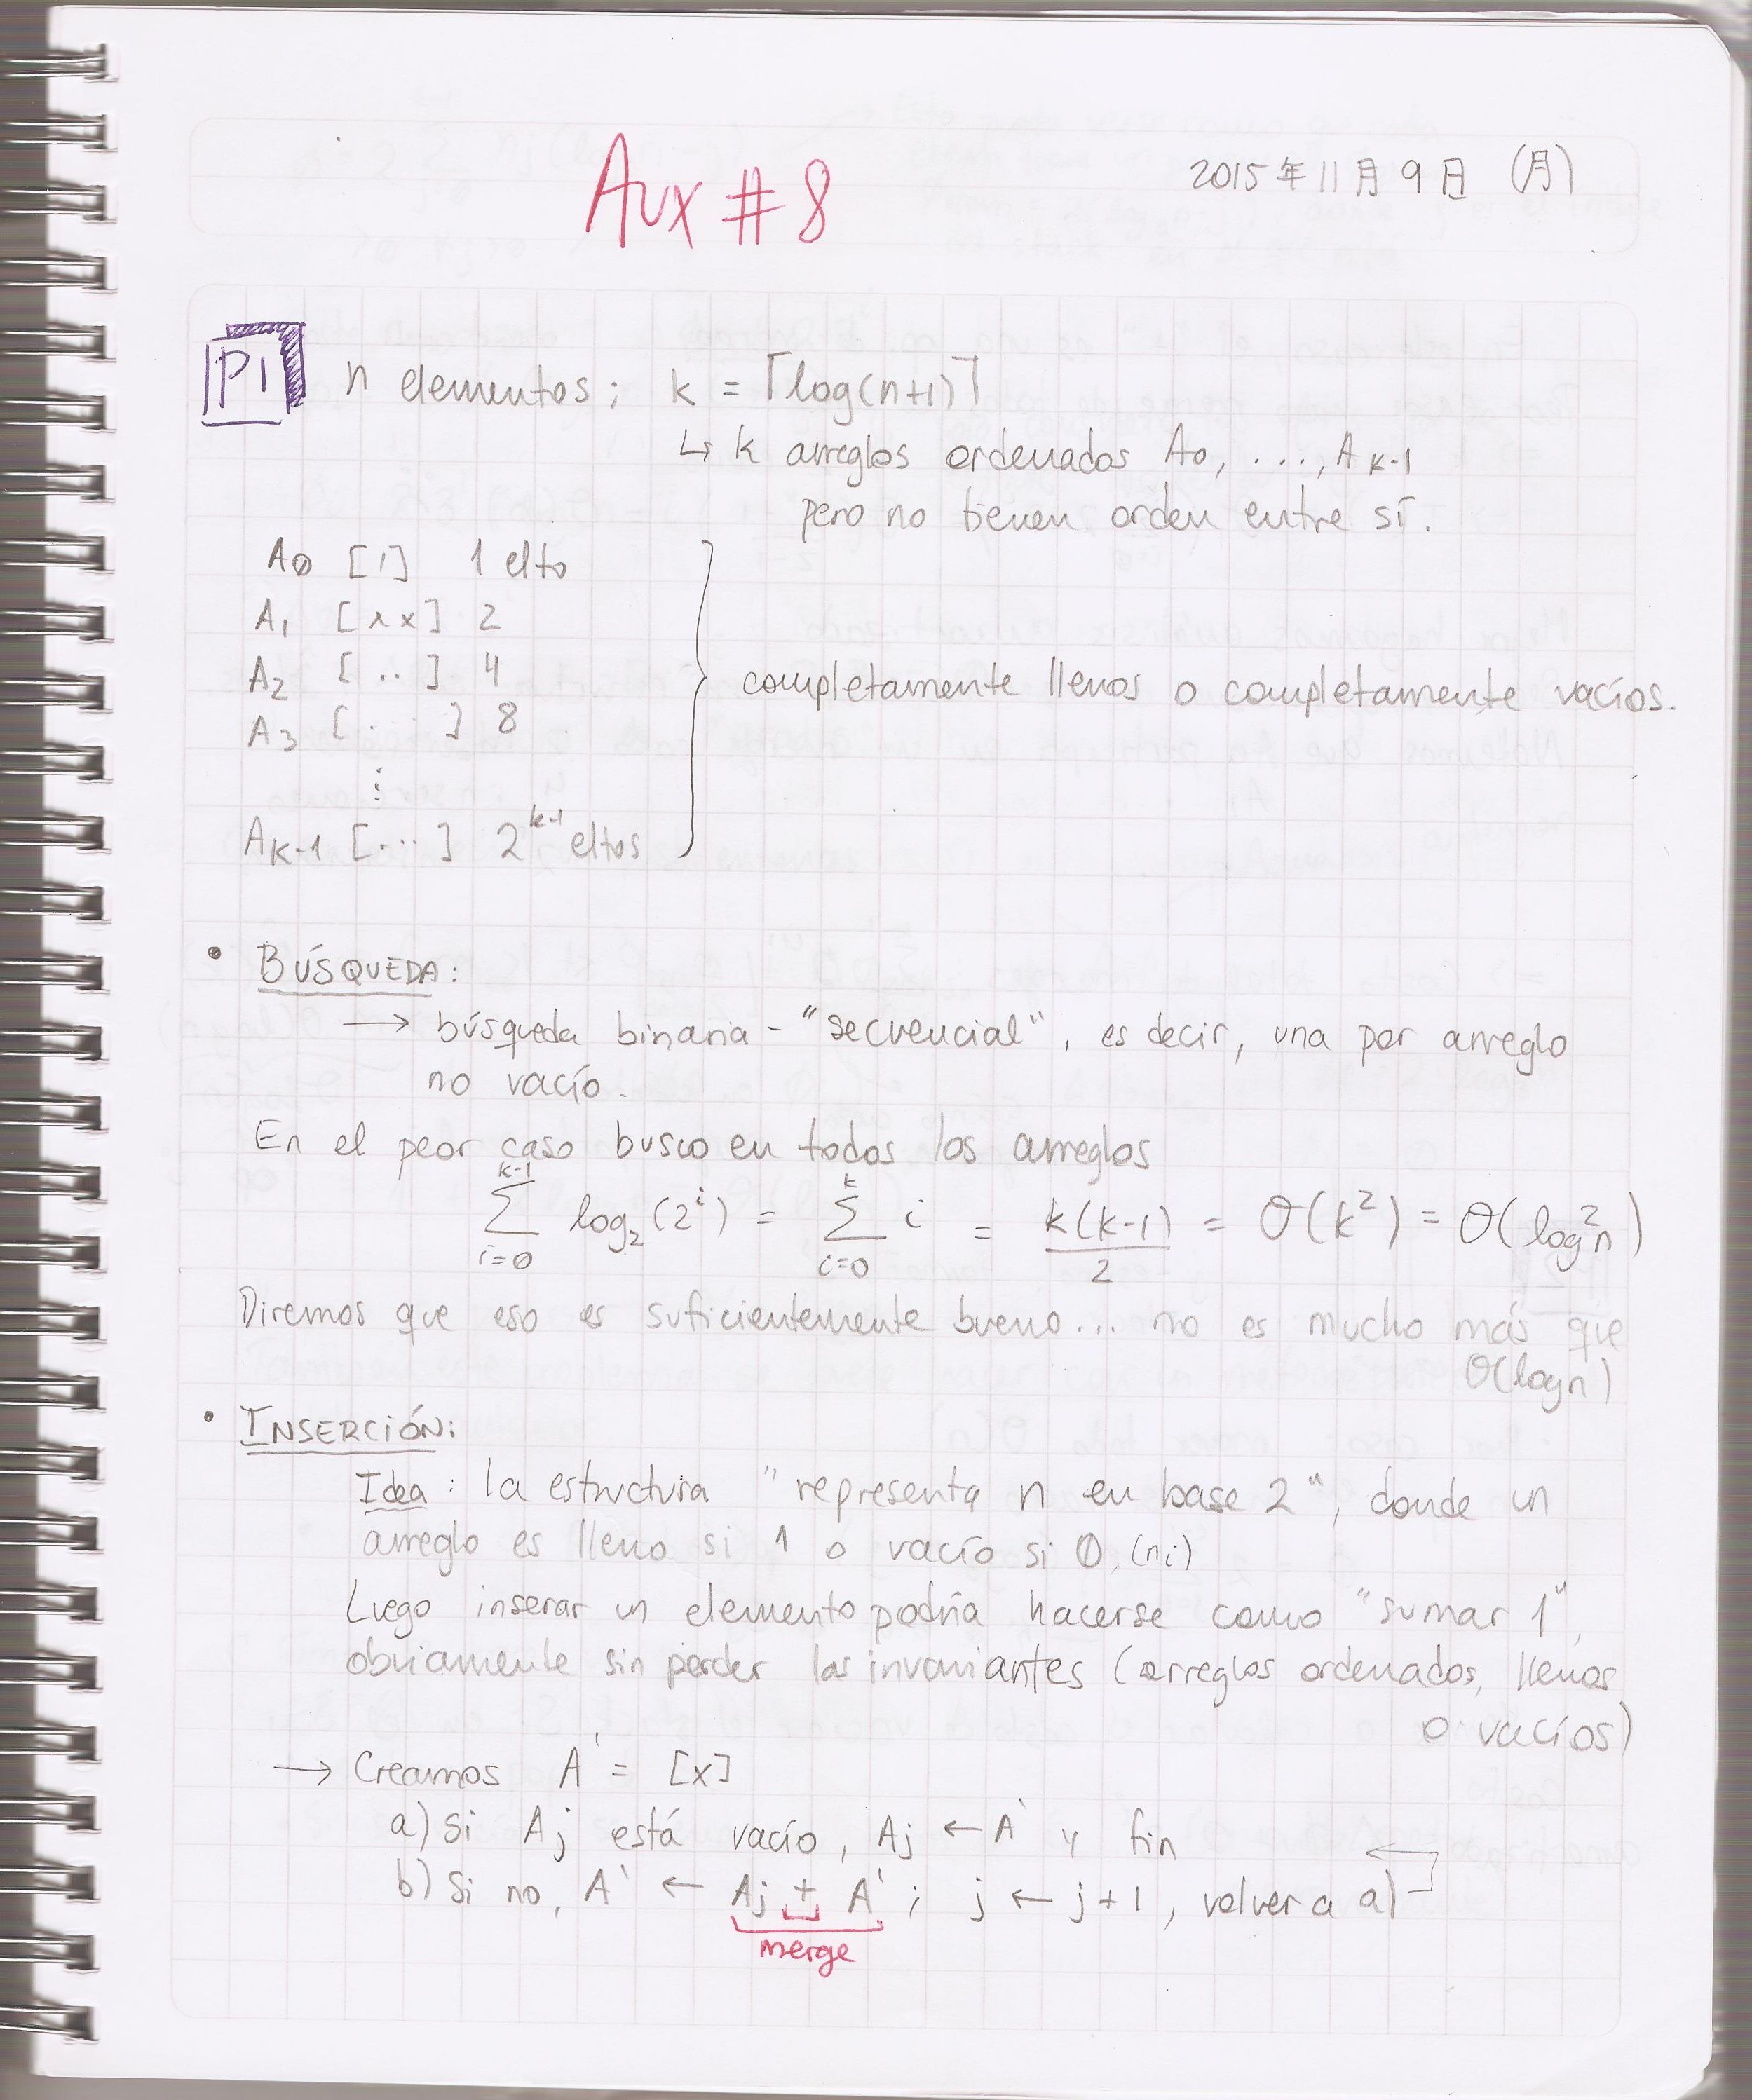 Aux # 8
2015年11月9日 (月)
P1 n elementos; k = ⌈log(n+1)⌉
↳ k arreglos ordenados A0, ..., A k-1
pero no tienen orden entre sí.
A0 [1] 1 elto
A1 [xx] 2
A2 [..] 4
A3 [... ] 8
⋮
completamente llenos o completamente vacíos.
AK-1 [...] 2^k-1 eltos
• BÚSQUEDA:
→ búsqueda binaria - "secuencial", es decir, una por arreglo
no vacío.
En el peor caso busco en todos los arreglos
∑_{i=0}^{k-1} log₂(2^i) = ∑_{i=0}^{k} i = k(k-1)/2 = O(k²) = O(log²n)
Diremos que eso es suficientemente bueno... no es mucho más que
O(log n)
• INSERCIÓN:
Idea: la estructura "representa n en base 2", donde un
arreglo es lleno si 1 o vacío si 0. (ni)
Luego inserar un elemento podría hacerse como "sumar 1",
obviamente sin perder las invariantes (arreglos ordenados, llenos
o vacíos)
→ Creamos A' = [x]
a) Si Aj está vacío, Aj ← A' y fin
b) Si no, A' ← Aj + A' ; j ← j+1, volver a a)
merge